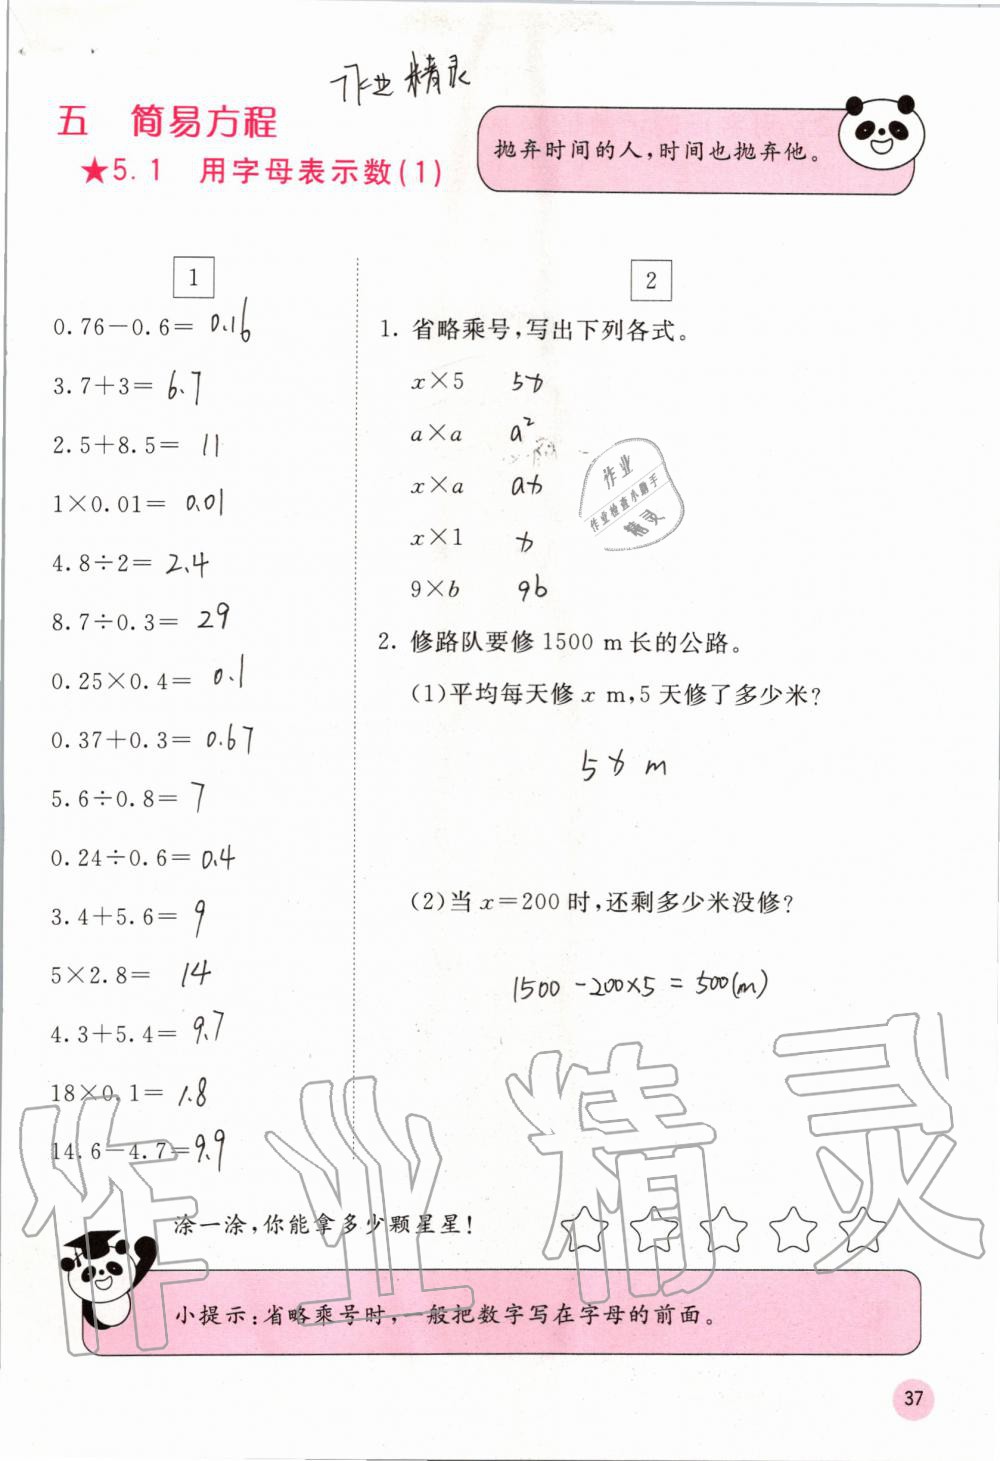 作业精灵
五 简易方程
★5.1 用字母表示数(1)
抛弃时间的人,时间也抛弃他。
1
0.76－0.6＝ 0.16
3.7＋3＝ 6.7
2.5＋8.5＝ 11
1×0.01＝ 0.01
4.8÷2＝ 2.4
8.7÷0.3＝ 29
0.25×0.4＝ 0.1
0.37＋0.3＝ 0.67
5.6÷0.8＝ 7
0.24÷0.6＝ 0.4
3.4＋5.6＝ 9
5×2.8＝ 14
4.3＋5.4＝ 9.7
18×0.1＝ 1.8
14.6－4.7＝ 9.9
2
1. 省略乘号,写出下列各式。
x×5 5x
a×a a²
x×a ax
x×1 x
9×b 9b
作业
作业检查小助手
精灵
2. 修路队要修 1500 m 长的公路。
(1)平均每天修 x m,5 天修了多少米?
5x m
(2)当 x＝200 时,还剩多少米没修?
1500－200×5＝500(m)
作业精灵
涂一涂,你能拿多少颗星星!
小提示:省略乘号时,一般把数字写在字母的前面。
37